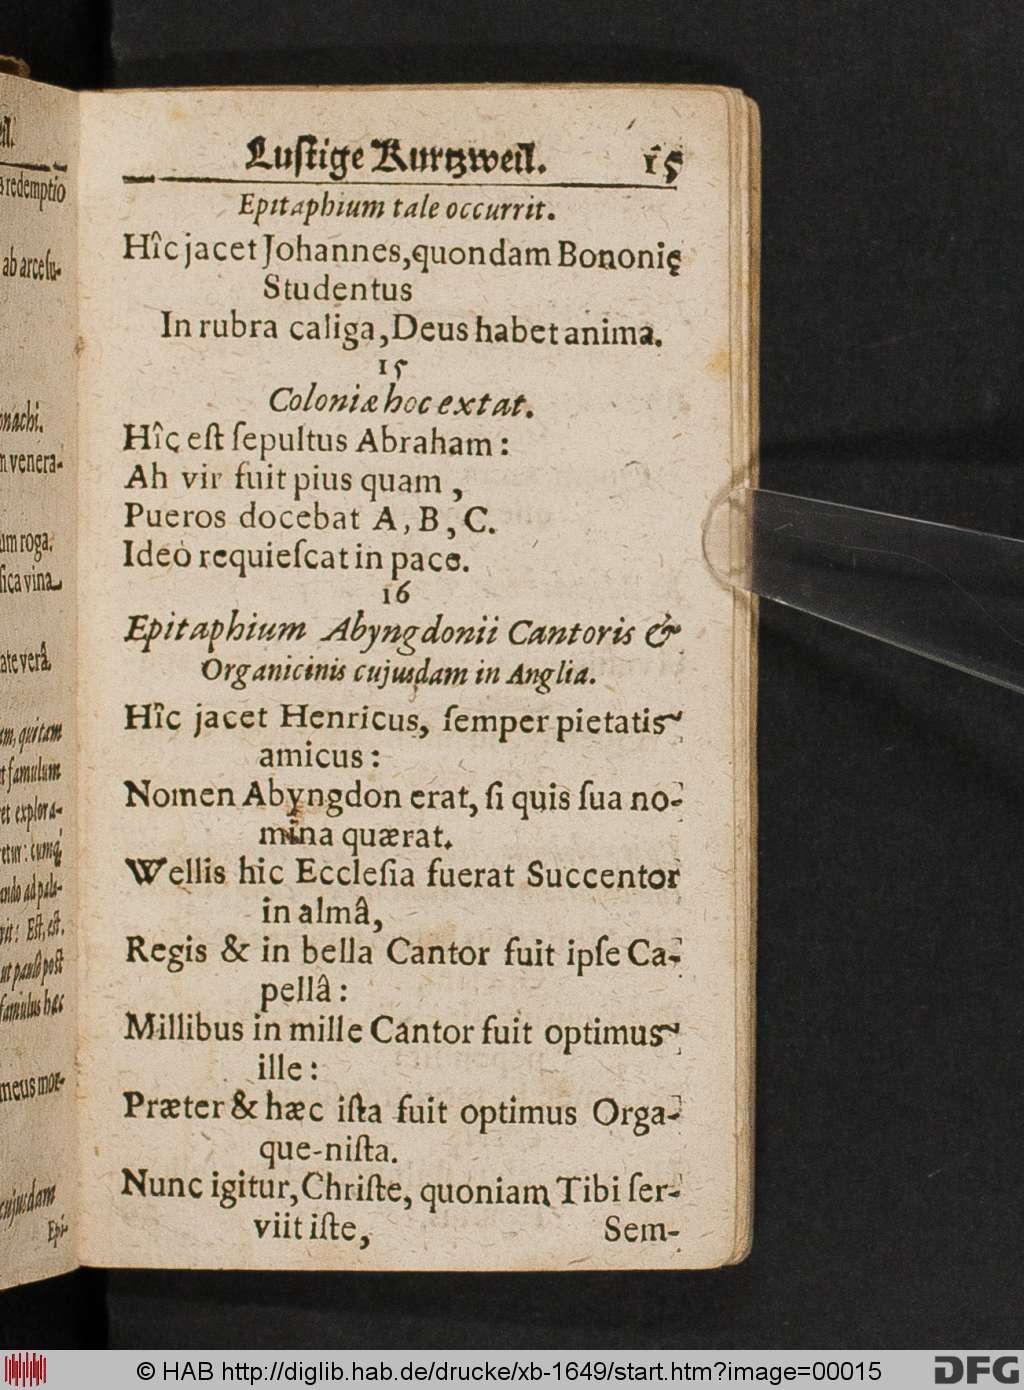 Lustige Kurtzweil. 15
Epitaphium tale occurrit.
Hîc jacet Johannes, quondam Bononię
Studentus
In rubra caliga, Deus habet anima.
15
Coloniæ hoc extat.
Hîc eſt ſepultus Abraham:
Ah vir fuit pius quam,
Pueros docebat A, B, C.
Ideò requieſcat in pace.
16
Epitaphium Abyngdonii Cantoris &
Organicinis cujusdam in Anglia.
Hîc jacet Henricus, ſemper pietatis
amicus:
Nomen Abyngdon erat, ſi quis ſua no-
mina quærat.
Wellis hic Eccleſia fuerat Succentor
in almâ,
Regis & in bella Cantor fuit ipſe Ca-
pellâ:
Millibus in mille Cantor fuit optimus
ille:
Præter & hæc iſta fuit optimus Orga-
que-niſta.
Nunc igitur, Chriſte, quoniam Tibi ſer-
viit iſte, Sem-
redemptio
ab arce ſu-
onachi.
venera-
um roga.
ſica vina
ate verâ.
um, qui tam
famulum
et explora-
etur: cumq;
ando ad pala-
Eſt, eſt.
ut paulò poſt
famulus hæc
meus mor-
cujusdam
Epi-
© HAB http://diglib.hab.de/drucke/xb-1649/start.htm?image=00015
DFG